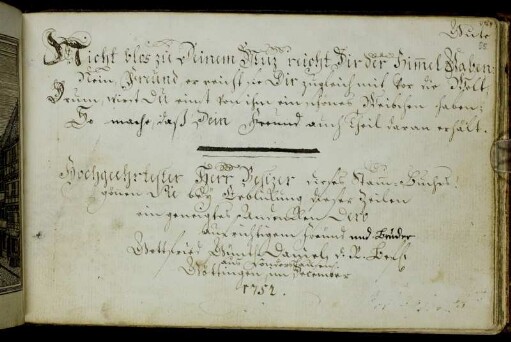 Nicht blos zu Deinem Nuz reicht Dir der Himel Gaben:
Nein Freund er reicht sie Dir zugleich mit vor die Welt
Drum, wirst Du einst von ihm ein schönes Weibchen haben;
So mache daß Dein Freund auch Theil daran erhält.
Hochgeehrtester Herr Besizer dieses Stam-Buches!
gönen Sie bey Erblickung dieser Zeilen
ein geneigtes Andencken Dero
aufrichtigem Freund und Bruder
Gottfried Daniel
aus Sondershausen
Göttingen im December
1752.